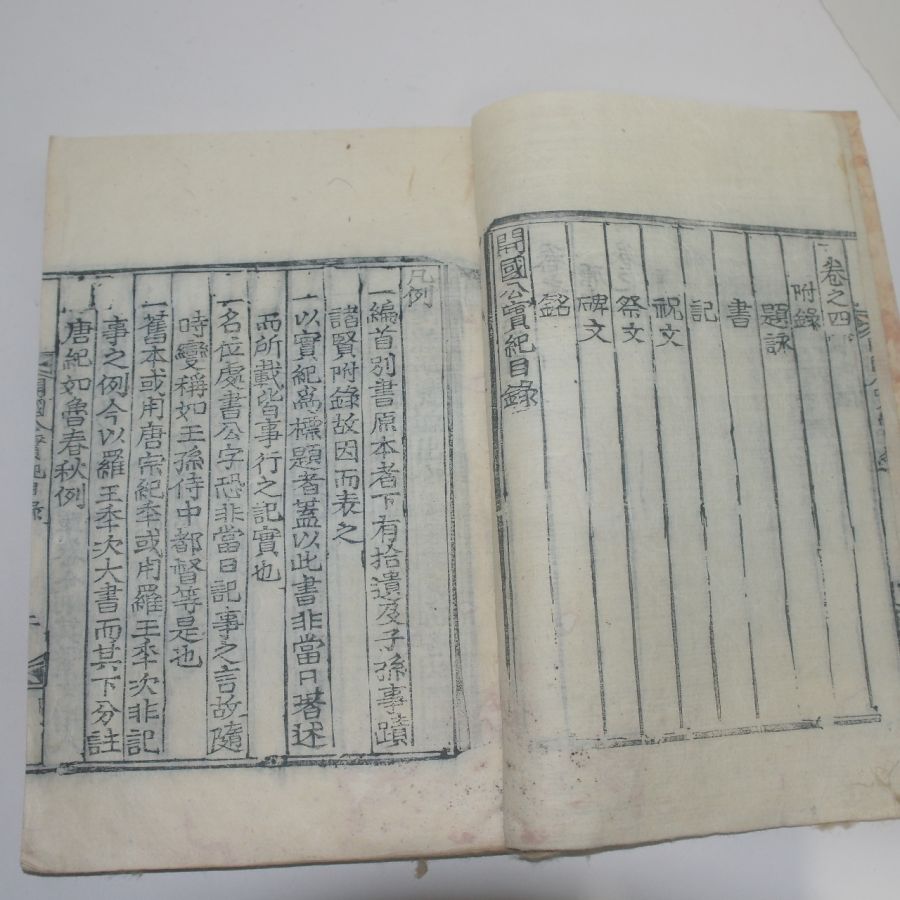 卷之四
附錄
題詠
書
記
祝文
祭文
碑文
銘
開國公實紀目錄
凡例
一編首別書原本者下有拾遺及子孫事蹟
諸賢附錄故因而表之
一以實紀爲標題者蓋以此書非當日著述
而所載皆事行之記實也
一名位處書公字恐非當日記事之言故隨
時變稱如王孫侍中都督等是也
一舊本或用唐宗紀年或用羅王年次非記
事之例今以羅王年次大書而其下分註
唐紀如魯春秋例